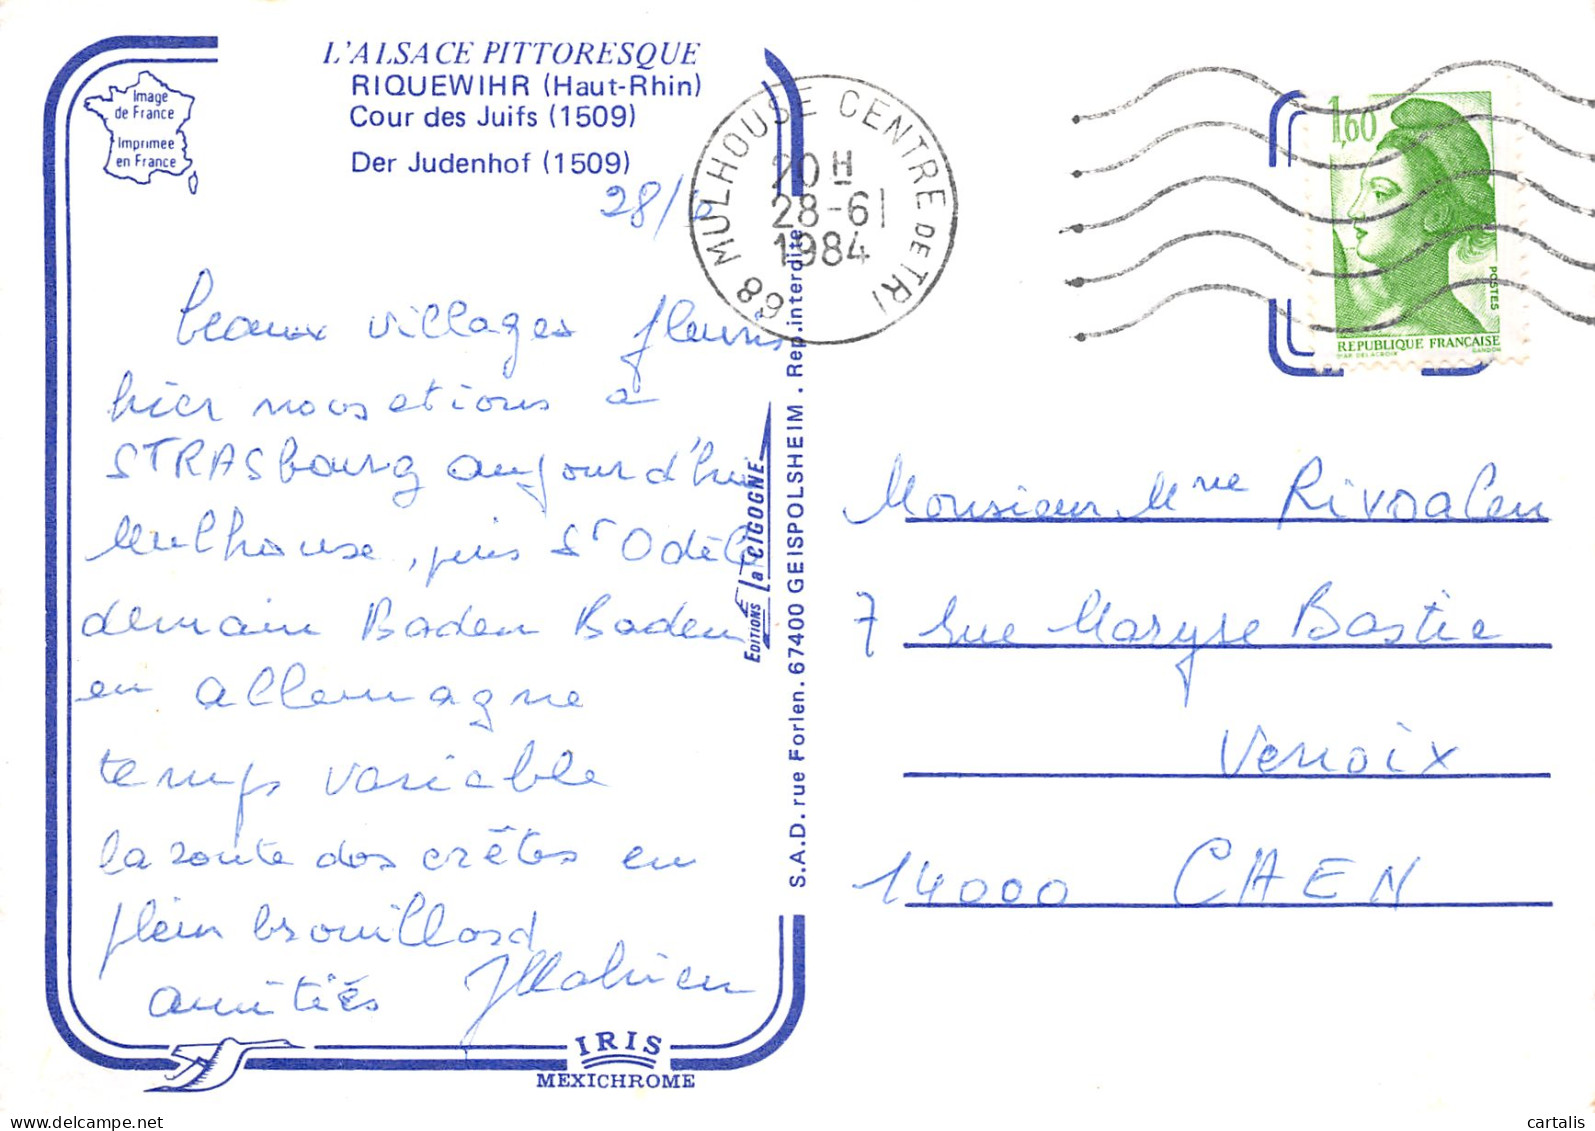 L'ALSACE PITTORESQUE
RIQUEWIHR (Haut-Rhin)
Cour des Juifs (1509)
Der Judenhof (1509)
Image
de France
Imprimée
en France
28/6
beaux villages fleuris
hier nous etions a
STRASbourg aujourd'hui
Mulhouse, puis St Odile
demain Baden Baden
en allemagne
temps variable
la route des crêtes en
plein brouillard
amitiés JMahieu
IRIS
MEXICHROME
EDITIONS La CIGOGNE
S.A.D. rue Forlen. 67400 GEISPOLSHEIM . Rep. interdite
68 MULHOUSE CENTRE DE TRI
20 H
28-6
1984
1,60
POSTES
REPUBLIQUE FRANÇAISE
D'AP. DELACROIX GANDON
Monsieur Mme Rivoalen
7 rue Maryse Bastie
Venoix
14000 CAEN
cartalis
cartalis